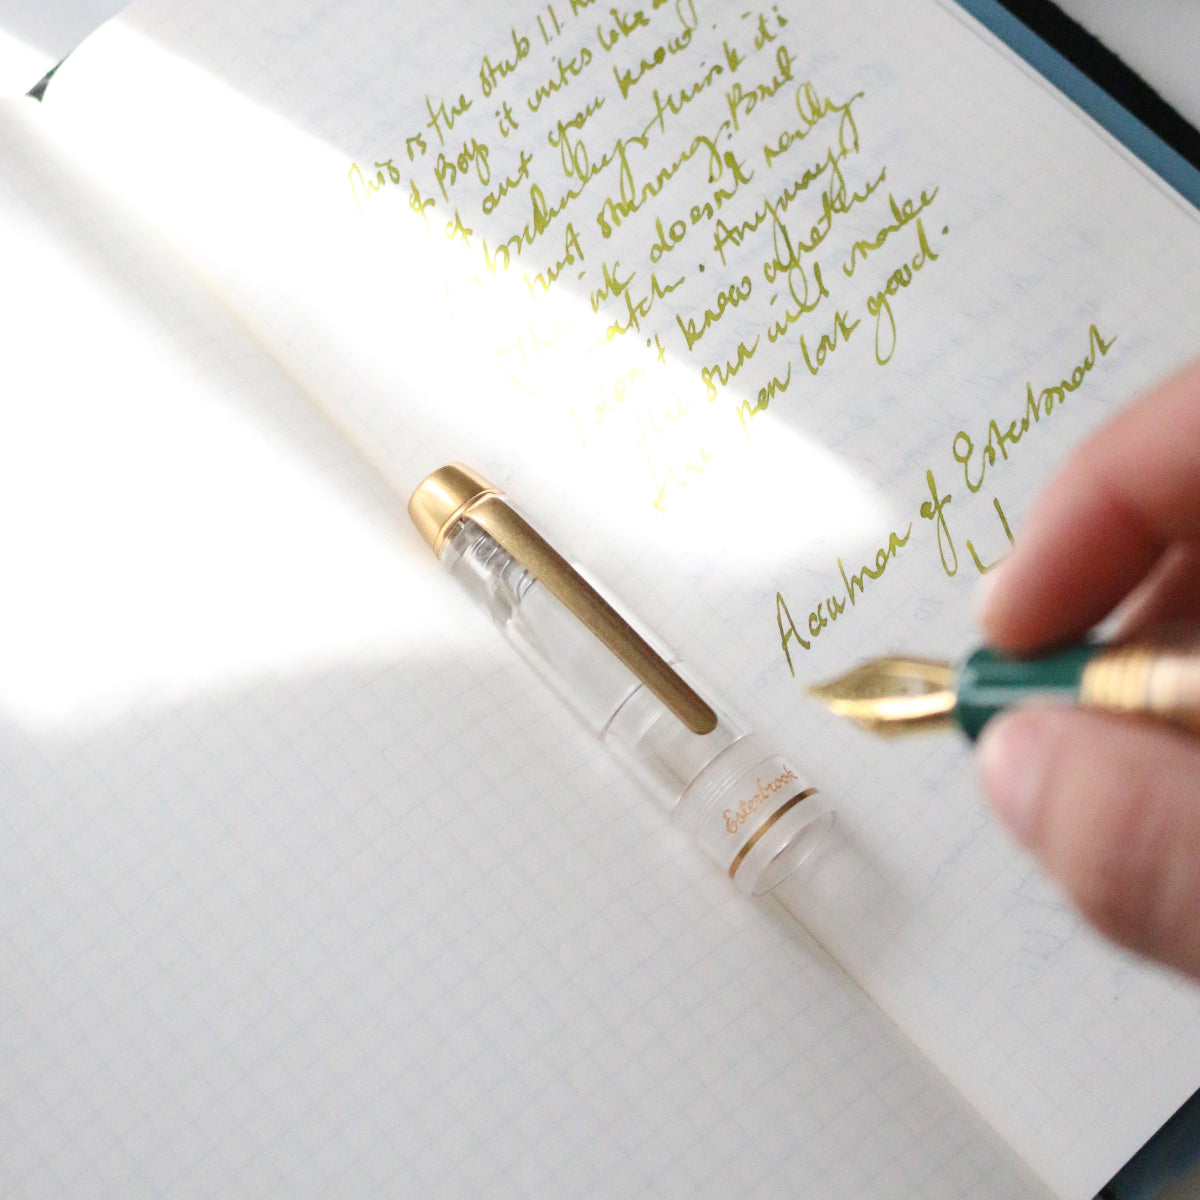 This is the stub 1.1
of Boy it writes like a
of out you know.
I think it's
just stunning. But
the ink doesn't really
match. Anyways,
I don't know whether
the sun will make
the pen look good.
of Esterbrook
Esterbrook